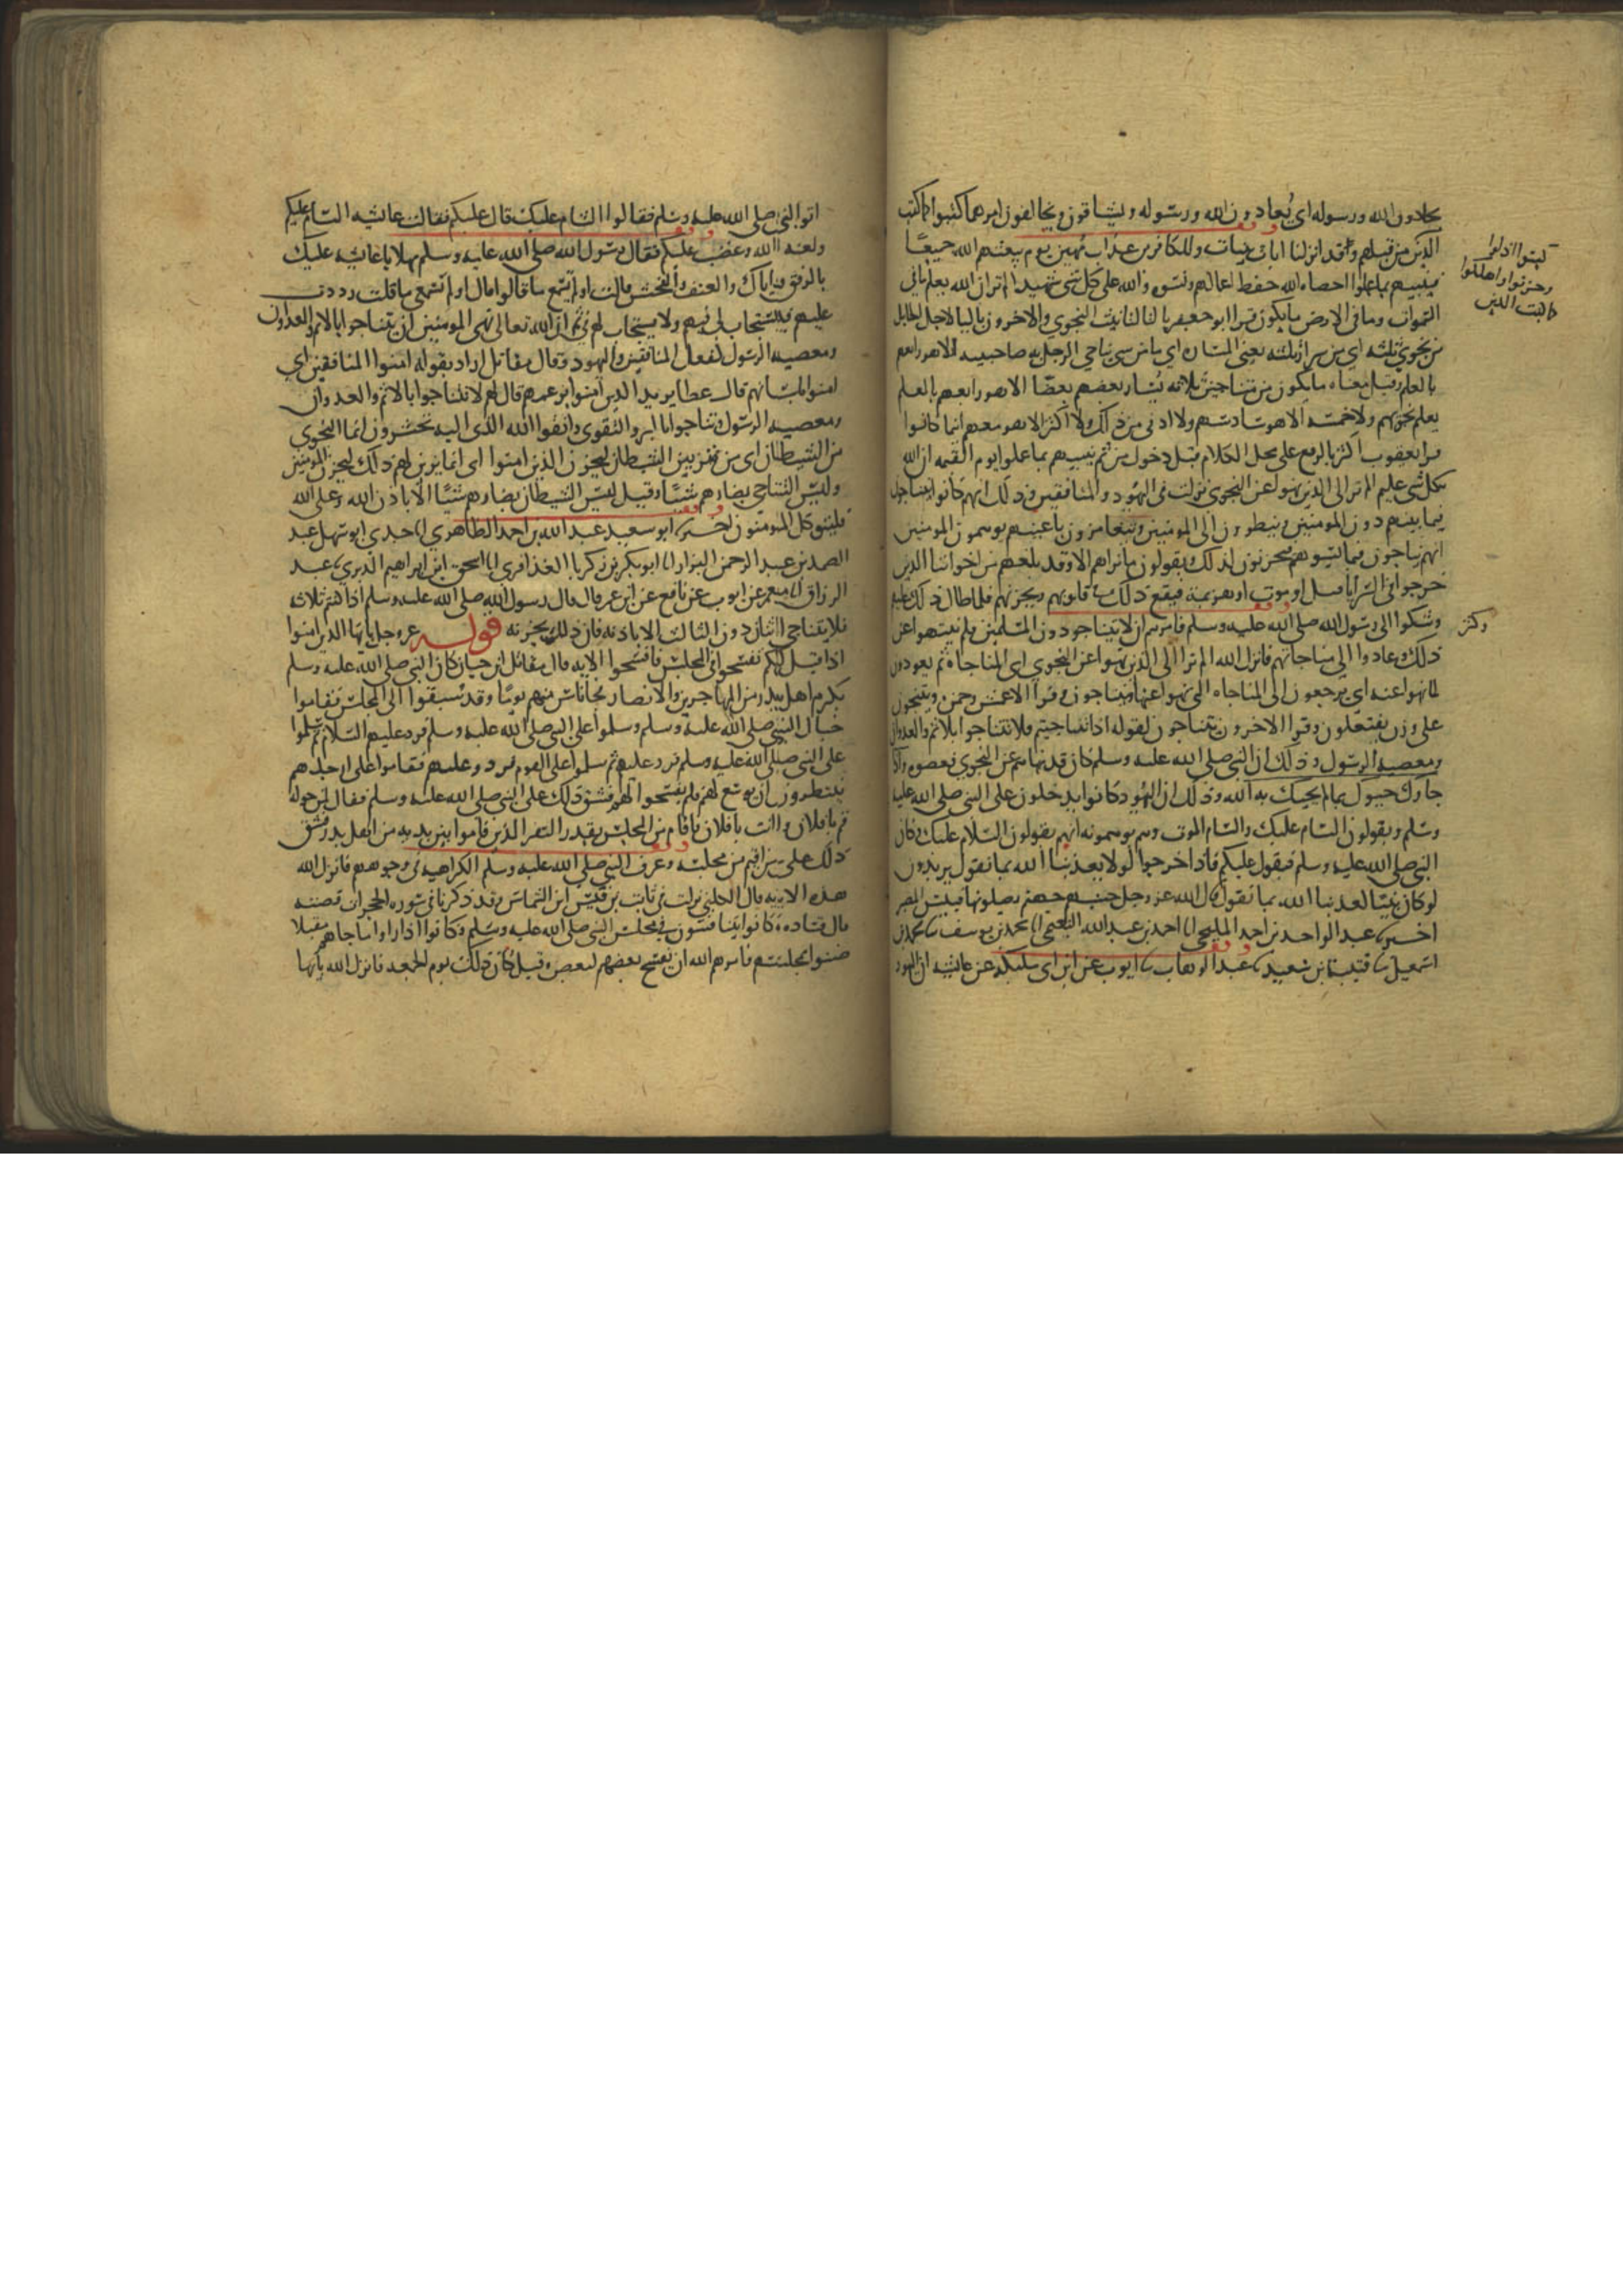 يحادون الله ورسوله اي يعادون الله ورسوله ويشاقون ويخالفون امرهما كبتوا كما كبت
الذين من قبلهم وقد انزلنا ايات بينات وللكافرين عذاب مهين يوم يبعثهم الله جميعًا
فينبيهم بما عملوا احصاه الله حفظ اعمالهم ونسوه والله على كل شي شهيد الم تر ان الله يعلم ما في
السموات وما في الارض ما يكون قرا ابو جعفر بالتا لتانيث النجوي والاخرون باليا لاجل الحايل
من نجوي ثلثه اي من سرار ثلثه يعني المسان اي ما من شي يناجي الرجل به صاحبيه الا هو رابعهم
بالعلم وقيل معناه ما يكون من متناجين ثلاثه يسار بعضهم بعضًا الا هو رابعهم بالعلم
يعلم نجويهم ولا خمسه الا هو سادسهم ولا ادني من ذلك ولا اكثر الا هو معهم اينما كانوا
قرا يعقوب اكثر بالرفع على محل الكلام قبل دخول من ثم ينبيهم بما عملوا يوم القيمه ان الله
بكل شي عليم الم تر الى الذين نهوا عن النجوي نزلت في اليهود والمنافقين وذلك انهم كانوا يتناجون
فيما بينهم دون المومنين وينظرون الى المومنين ويتغامزون باعينهم يوهمون المومنين
انهم يتناجون فيما يسوهم فيحزنون لذلك ويقولون ما نراهم الا وقد بلغهم من اخواننا الذين
خرجوا في السرايا قتل او موت او هزيمة فيقع ذلك في قلوبهم ويحزنهم فلما طال ذلك عليهم
وشكوا الى رسول الله صلى الله عليه وسلم فامرهم ان لا يتناجوا دون المسلمين فلم ينتهوا عن
ذلك وعادوا الى مناجاتهم فانزل الله الم تر الى الذين نهوا عن النجوي اي المناجاة ثم يعودون
لما نهوا عنه اي يرجعون الى المناجاه التي نهوا عنها ويتناجون وقرا الاعمش وحمزه وينتجون
على وزن يفتعلون وقرا الاخرون يتناجون لقوله اذا تناجيتم فلا تتناجوا بالاثم والعدوان
ومعصيه الرسول وذلك ان النبي صلى الله عليه وسلم كان قد نهاهم عن النجوي فعصوه واذا
جاوك حيوك بما لم يحيك به الله وذلك ان اليهود كانوا يدخلون على النبي صلى الله عليه
وسلم ويقولون السام عليك والسام الموت وهم يوهمونه انهم يقولون السلام عليك وكان
النبي صلى الله عليه وسلم فيقول عليكم فاذا خرجوا لولا يعذبنا الله بما نقول يريدون
لو كان نبيا لعذبنا الله بما نقول قال الله عز وجل حسبهم جهنم يصلونها فبيس المصير
اخبرنا عبد الواحد بن احمد المليحي انا احمد بن عبد الله النعيمي انا محمد بن يوسف نا محمد بن
اسمعيل نا قتيبة بن سعيد نا عبد الوهاب نا ايوب عن ابن ابي مليكة عن عايشه ان اليهود
كبتوا اذلوا
وحزنوا واهلكوا
كما كبت الذين
اتوا النبي صلى الله عليه وسلم فقالوا السام عليك قال عليكم فقالت عايشه السام عليكم
ولعنه الله وغضب عليكم فقال رسول الله صلى الله عليه وسلم مهلا يا عايشه عليك
بالرفق واياك والعنف والفحش قالت اولم تسمع ما قالوا قال اولم تسمعي ما قلت رددت
عليهم فيستجاب لي فيهم ولا يستجاب لهم في ثم ان الله تعالى نهى المومنين ان يتناجوا بالاثم والعدوان
ومعصيه الرسول كفعل المنافقين واليهود وقال مقاتل اراد بقوله امنوا المنافقين اي
امنوا بلسانهم قال عطا يريد الذين امنوا بزعمهم قال لهم لا تتناجوا بالاثم والعدوان
ومعصيه الرسول وتناجوا بالبر والتقوى واتقوا الله الذي اليه تحشرون انما النجوي
من الشيطان اي من تزيين الشيطان ليحزن الذين امنوا اي انما يزين لهم ذلك ليحزن المومنين
وليس التناجي بضارهم شيًا وقيل ليس الشيطان بضارهم شيًا الا باذن الله وعلى الله
فليتوكل المومنون اخبرنا ابو سعيد عبد الله بن احمد الطاهري انا جدي ابو سهل عبد
الصمد بن عبد الرحمن البزار انا ابو بكر بن زكريا الغذافري انا اسحق ابن ابراهيم الدبري نا عبد
الرزاق انا معمر عن ايوب عن نافع عن ابن عمر قال قال رسول الله صلى الله عليه وسلم اذا كنتم ثلاثه
فلا يتناجى اثنان دون الثالث الا باذنه فان ذلك يحزنه قوله عز وجل يايها الذين امنوا
اذا قيل لكم تفسحوا في المجلس فافسحوا الايه قال مقاتل بن حيان كان النبي صلى الله عليه وسلم
يكرم اهل بدر من المهاجرين والانصار فجا ناس منهم يومًا وقد سبقوا الى المجلس فقاموا
حيال النبي صلى الله عليه وسلم وسلموا على النبي صلى الله عليه وسلم فرد عليهم السلام ثم سلموا
على النبي صلى الله عليه وسلم فرد عليهم ثم سلموا على القوم فردوا عليهم فقاموا على ارجلهم
ينتظرون ان يوسع لهم فلم يفسحوا لهم فشق ذلك على النبي صلى الله عليه وسلم فقال لمن حوله
قم يا فلان وانت يا فلان فاقام من المجلس بقدر النفر الذين قاموا بين يديه من اهل بدر فشق
ذلك على من اقيم من مجلسه وعرف النبي صلى الله عليه وسلم الكراهيه في وجوههم فانزل الله
هذه الايه قال الكلبي نزلت في ثابت بن قيس ابن الشماس وقد ذكرنا في سوره الحجرات قصته
قال قتاده كانوا يتنافسون في مجلس النبي صلى الله عليه وسلم وكانوا اذا راوا من جاهم مقبلا
ضنوا بمجلسهم فامرهم الله ان يفسح بعضهم لبعض وقيل كان ذلك يوم الجمعه فانزل الله يايها